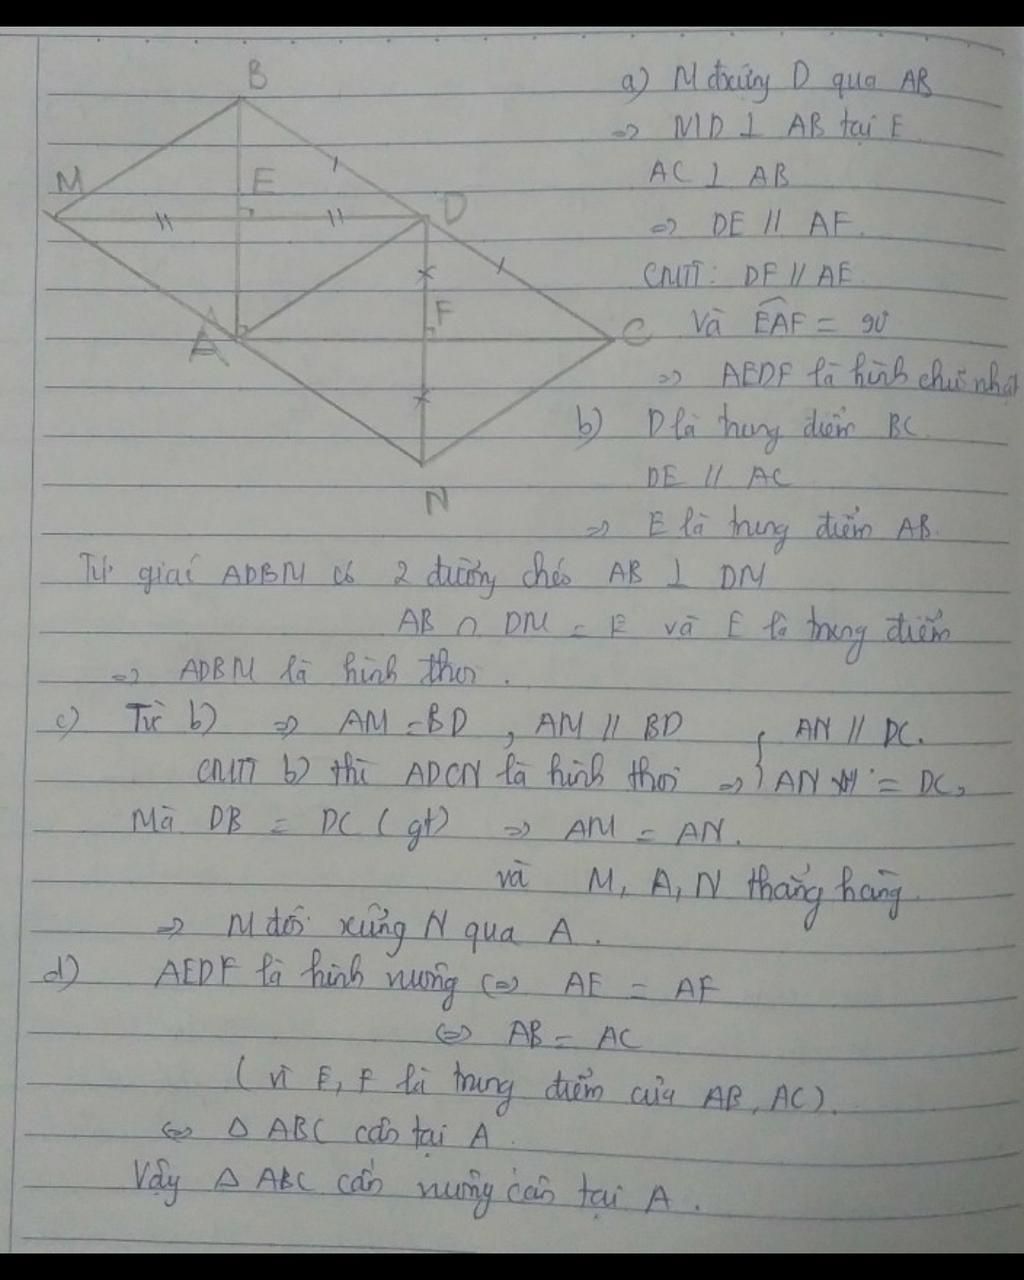 B
M
E
D
A
F
C
N
a) M đxứng D qua AB
=> MD ⊥ AB tại E
AC ⊥ AB
=> DE // AF.
CMTT: DF // AE
và EAF = 90
=> AEDF là hình chữ nhật
b) D là trung điểm BC.
DE // AC
=> E là trung điểm AB.
Tứ giác ADBM có 2 đường chéo AB ⊥ DM
AB ∩ DM = E và E là trung điểm
=> ADBM là hình thoi.
c) Từ b) => AM = BD, AM // BD { AN // DC.
CMTT b) thì ADCN là hình thoi => AN = DC,
Mà DB = DC (gt) => AM = AN.
và M, A, N thẳng hàng.
=> M đối xứng N qua A.
d) AEDF là hình vuông <=> AE = AF
<=> AB = AC
(vì E, F là trung điểm của AB, AC).
<=> Δ ABC cân tại A.
Vậy Δ ABC cần vuông cân tại A.